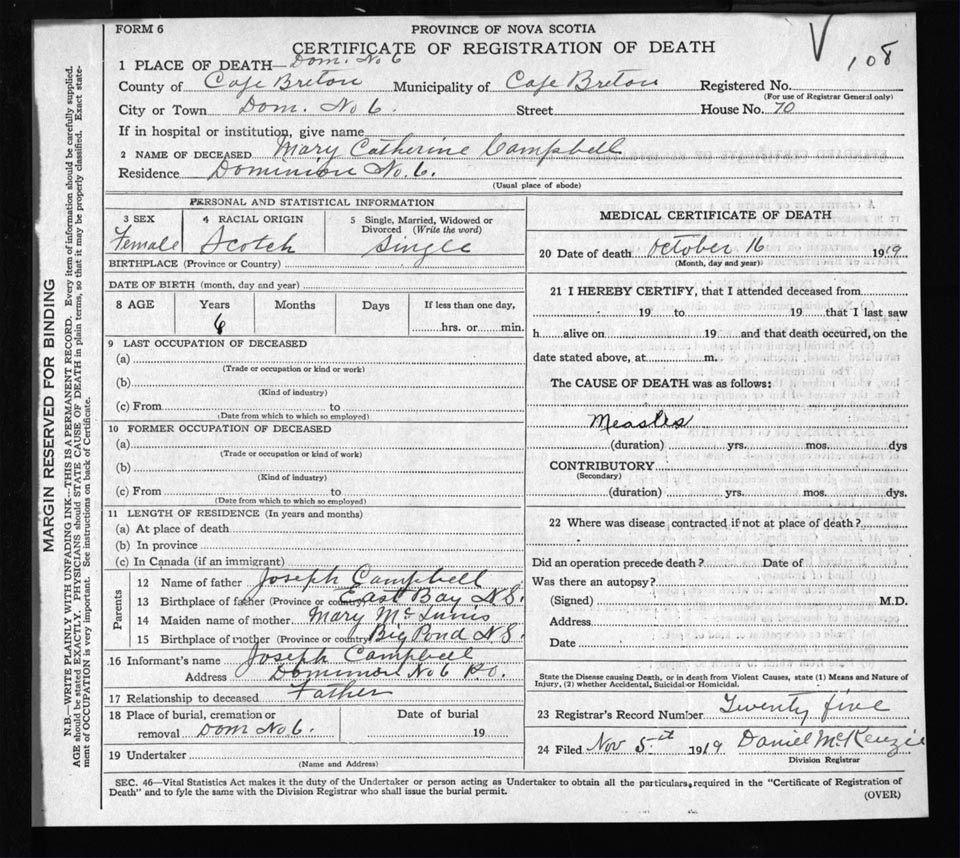 FORM 6
PROVINCE OF NOVA SCOTIA
CERTIFICATE OF REGISTRATION OF DEATH
108
1 PLACE OF DEATH Dom. No 6
County of Cape Breton Municipality of Cape Breton Registered No.
(For use of Registrar General only)
City or Town Dom. No 6. Street House No. 70
If in hospital or institution, give name
2 NAME OF DECEASED Mary Catherine Campbell
Residence Dominion No. 6.
(Usual place of abode)
PERSONAL AND STATISTICAL INFORMATION
3 SEX 4 RACIAL ORIGIN 5 Single, Married, Widowed or Divorced (Write the word)
Female Scotch Single
BIRTHPLACE (Province or Country)
DATE OF BIRTH (month, day and year)
8 AGE Years Months Days If less than one day,
6 hrs. or min.
9 LAST OCCUPATION OF DECEASED
(a)
(Trade or occupation or kind or work)
(b)
(Kind of industry)
(c) From to
(Date from which to which so employed)
10 FORMER OCCUPATION OF DECEASED
(a)
(Trade or occupation or kind of work)
(b)
(Kind of industry)
(c) From to
(Date from which to which so employed)
11 LENGTH OF RESIDENCE (In years and months)
(a) At place of death
(b) In province
(c) In Canada (if an immigrant)
Parents
12 Name of father Joseph Campbell
13 Birthplace of father (Province or country) East Bay N S.
14 Maiden name of mother Mary McInnis
15 Birthplace of mother (Province or country Big Pond N S.
16 Informant's name Joseph Campbell
Address Dominion No 6 P.O.
17 Relationship to deceased Father
18 Place of burial, cremation or removal Dom No 6. Date of burial 19
19 Undertaker
(Name and Address)
MEDICAL CERTIFICATE OF DEATH
20 Date of death October 16 1919
(Month, day and year)
21 I HEREBY CERTIFY, that I attended deceased from
19 to 19 that I last saw
h alive on 19 and that death occurred, on the
date stated above, at m.
The CAUSE OF DEATH was as follows:
Measles
(duration) yrs. mos. dys
CONTRIBUTORY
(Secondary)
(duration) yrs. mos. dys.
22 Where was disease contracted if not at place of death?
Did an operation precede death? Date of
Was there an autopsy?
(Signed) M.D.
Address
Date
State the Disease causing Death, or in death from Violent Causes, state (1) Means and Nature of
Injury, (2) whether Accidental, Suicidal or Homicidal.
23 Registrar's Record Number Twenty five
24 Filed Nov 5th 1919 Daniel McKenzie
Division Registrar
SEC. 46—Vital Statistics Act makes it the duty of the Undertaker or person acting as Undertaker to obtain all the particulars, required in the "Certificate of Registration of
Death" and to fyle the same with the Division Registrar who shall issue the burial permit.
(OVER)
MARGIN RESERVED FOR BINDING
N.B.—WRITE PLAINLY WITH UNFADING INK—THIS IS A PERMANENT RECORD. Every item of information should be carefully supplied.
AGE should be stated EXACTLY. PHYSICIANS should STATE CAUSE OF DEATH in plain terms, so that it may be properly classified. Exact state-
ment of OCCUPATION is very important. See instructions on back of Certificate.